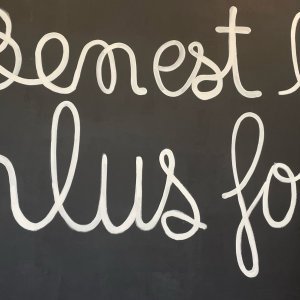 enest l
lus fo